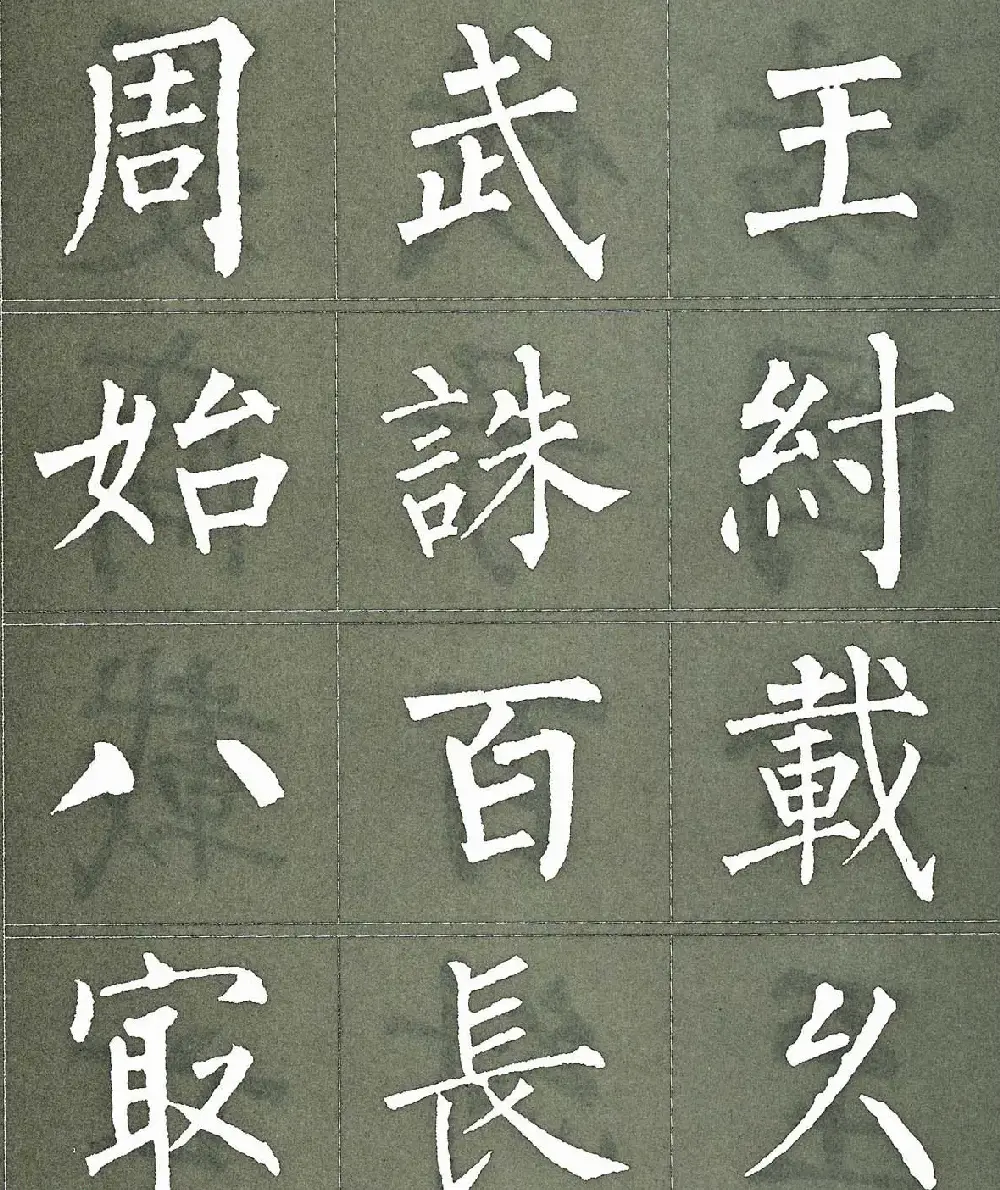 周武王
始誅紂
八百載
㝡長久